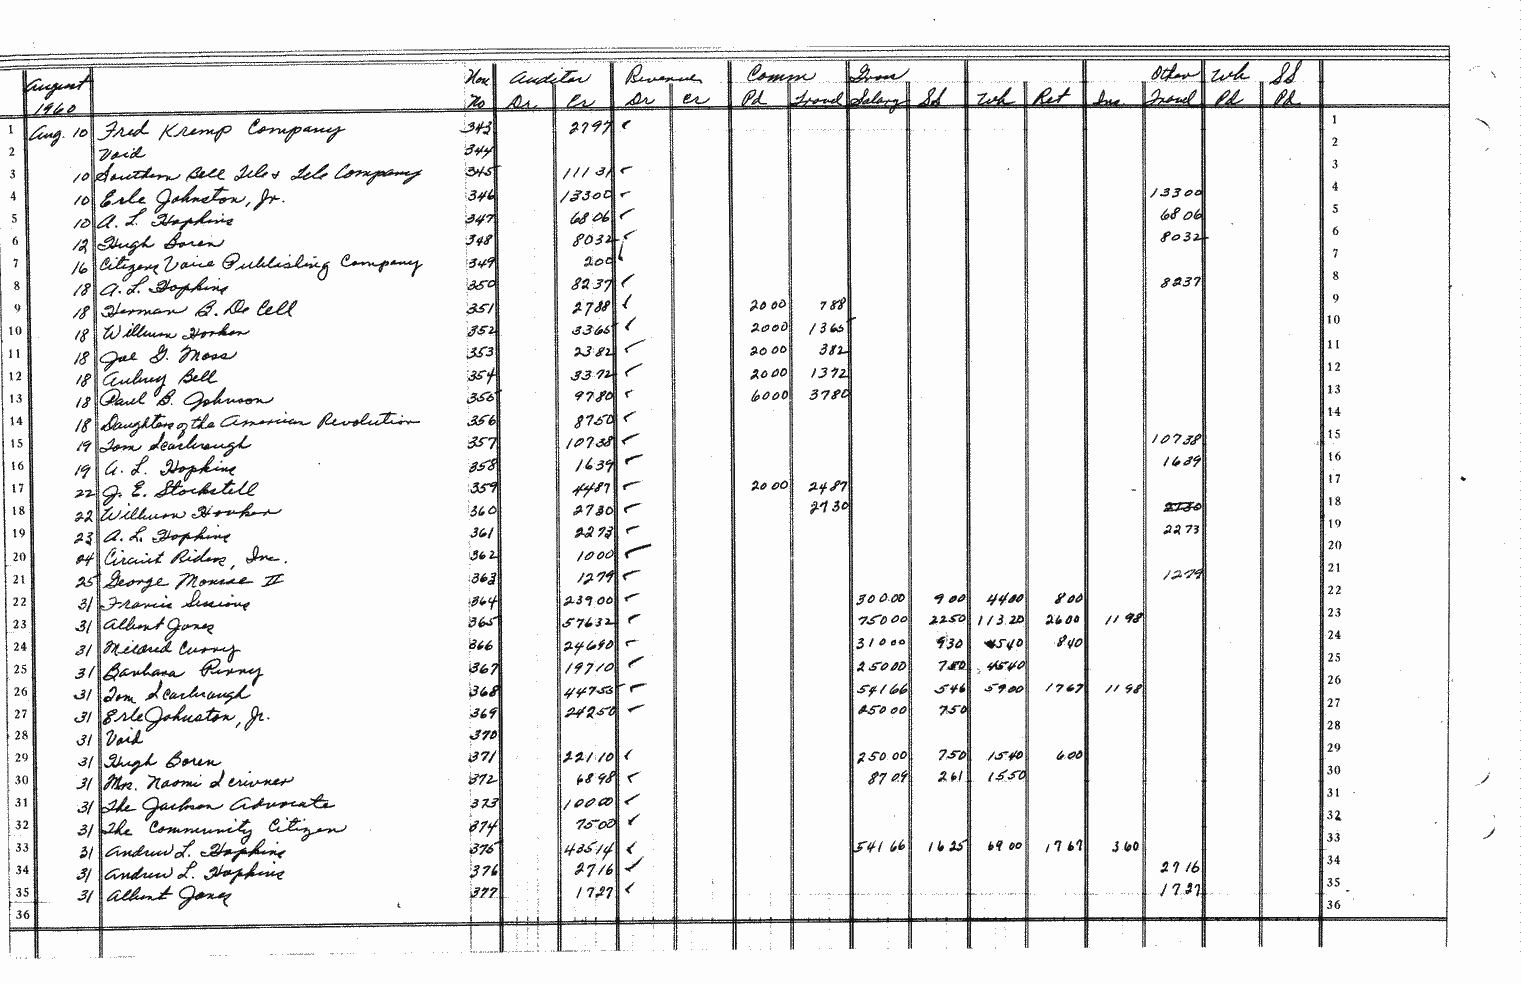 August 1960 Auditor Revenue Comm Gross Other Wh SS
No Dr. Cr Dr Cr Pd Travel Salary SS Wh Ret Ins. Travel Pd Pd
1 Aug. 10 Fred Kremp Company 343 2797 1
2 Void 344 2
3 10 Southern Bell Tele & Tele Company 345 11131 3
4 10 Erle Johnston, Jr. 346 13300 13300 4
5 10 A. L. Hopkins 347 6806 6806 5
6 12 Hugh Boren 348 8032 8032 6
7 16 Citizens Voice Publishing Company 349 200 7
8 18 A. L. Hopkins 350 8237 8237 8
9 18 Herman B. De Cell 351 2788 2000 788 9
10 18 Wilburn Hooker 352 3365 2000 1365 10
11 18 Joe G. Moss 353 2382 2000 382 11
12 18 Aubrey Bell 354 3372 2000 1372 12
13 18 Paul B. Johnson 355 9780 6000 3780 13
14 18 Daughters of the American Revolution 356 8750 14
15 19 Tom Scarbrough 357 10738 10738 15
16 19 A. L. Hopkins 358 1639 1639 16
17 22 J. E. Stockstill 359 4487 2000 2487 17
18 22 Wilburn Hooker 360 2730 2730 2730 18
19 23 A. L. Hopkins 361 2273 2273 19
20 24 Circuit Riders, Inc. 362 1000 20
21 25 George Monroe II 363 1279 1279 21
22 31 Francis Sessions 364 239.00 300.00 9 00 4400 800 22
23 31 Albert Jones 365 57632 750 00 2250 113.20 2600 11 98 23
24 31 Mildred Curry 366 24690 310 00 930 4540 840 24
25 31 Barbara 367 19710 250.00 750 4540 25
26 31 Tom Scarbrough 368 44755 541 66 546 5900 1767 1198 26
27 31 Erle Johnston, Jr. 369 24250 250 00 750 27
28 31 Void 370 28
29 31 Hugh Boren 371 221.10 250.00 750 1540 600 29
30 31 Mrs. Naomi Scrivner 372 6898 87 09 261 1550 30
31 31 The Jackson Advocate 373 10000 31
32 31 The Community Citizen 374 7500 32
33 31 Andrew L. Hopkins 375 43514 541 66 1625 6900 1767 360 33
34 31 Andrew L. Hopkins 376 2716 2716 34
35 31 Albert Jones 377 1727 1727 35
36 36